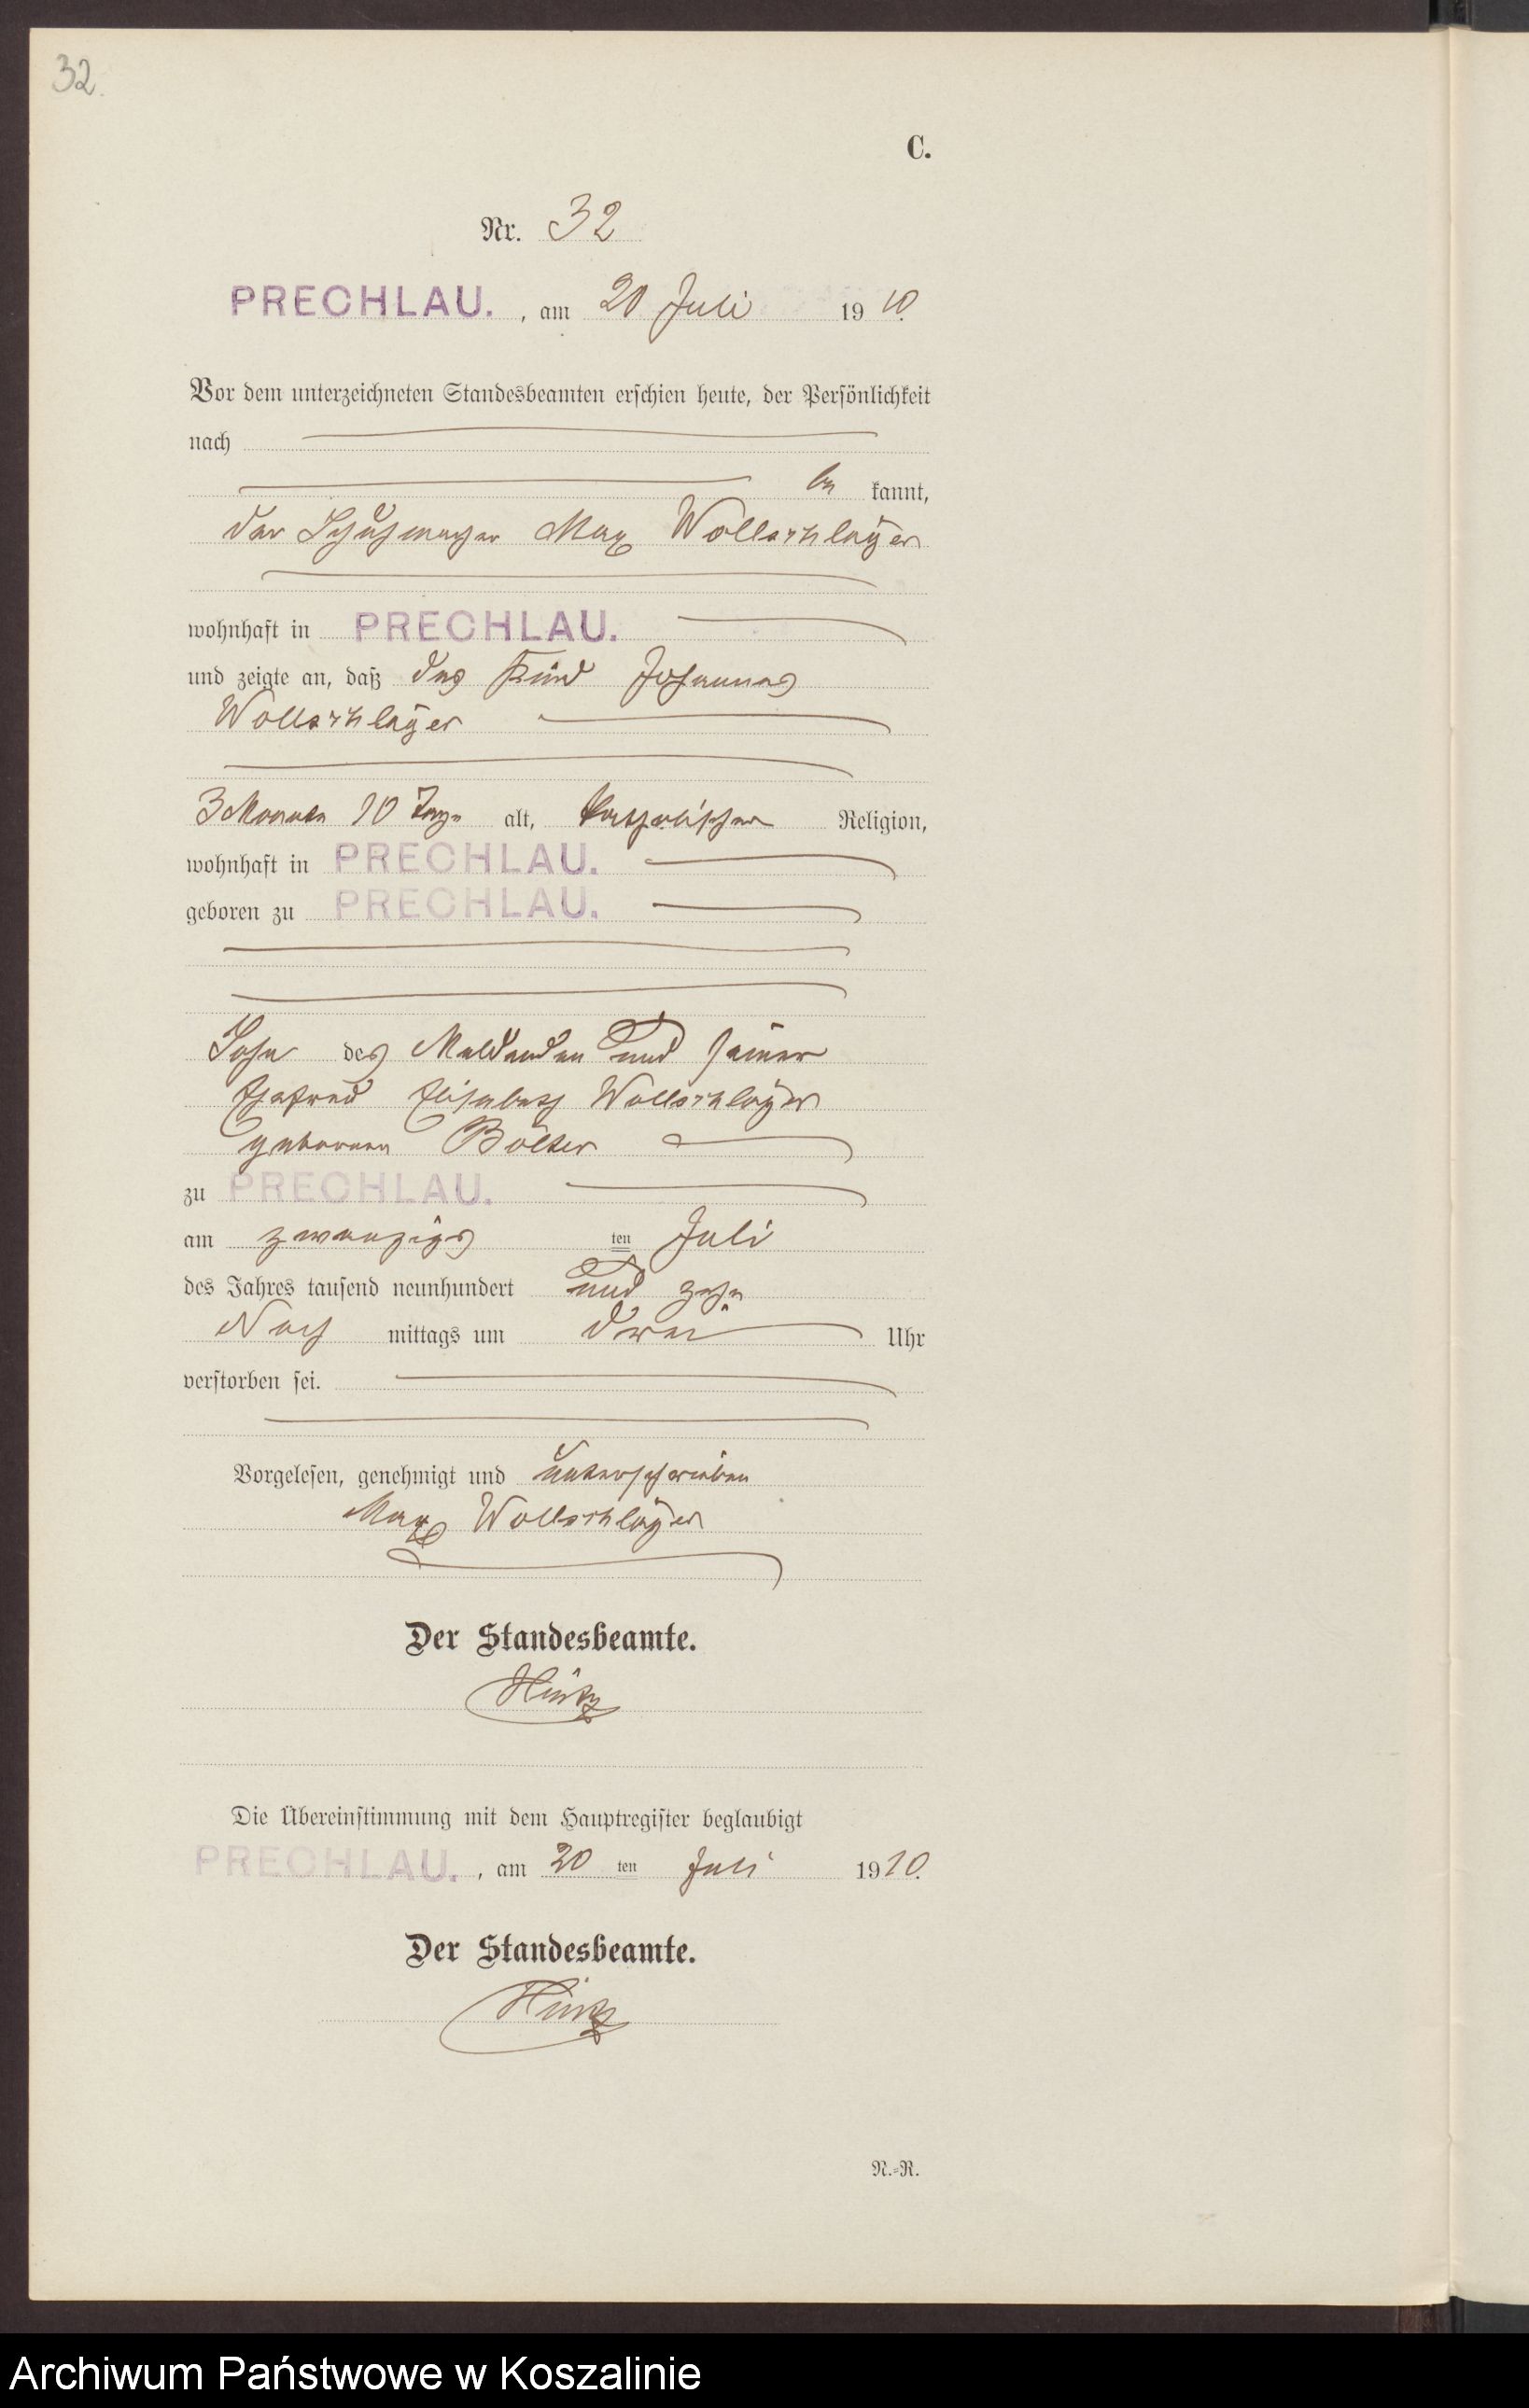 32.
C.
Nr. 32
PRECHLAU. , am 20 Juli 1910.
Vor dem unterzeichneten Standesbeamten erschien heute, der Persönlichkeit
nach
be kannt,
der Schuhmacher Max Wollschläger
wohnhaft in PRECHLAU.
und zeigte an, daß das Kind Johannes
Wollschläger
3 Monate 10 Tage alt, katholischer Religion,
wohnhaft in PRECHLAU.
geboren zu PRECHLAU.
Sohn des Meldenden und seiner
Ehefrau Elisabeth Wollschläger
geborenen Bölter
zu PRECHLAU.
am zwanzigs ten Juli
des Jahres tausend neunhundert und zehn
Nach mittags um drei Uhr
verstorben sei.
Vorgelesen, genehmigt und unterschrieben
Max Wollschläger
Der Standesbeamte.
Hintz
Die Übereinstimmung mit dem Hauptregister beglaubigt
PRECHLAU. , am 20 ten Juli 1910.
Der Standesbeamte.
Hintz
N.=R.
Archiwum Państwowe w Koszalinie